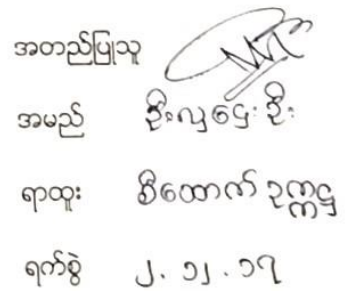 အတည်ပြုသူ
အမည် ဦးလှဌေးဦး
ရာထူး စီထောက် ဥက္ကဋ္ဌ
ရက်စွဲ ၂.၁၂.၁၇